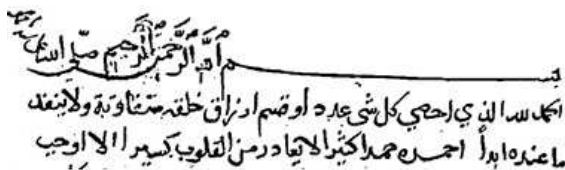 بسم الله الرحمن الرحيم صلى الله على
الحمد لله الذي احصى كل شى عدد او قسم ارزاق خلقه متفاوتة ولا ينفد
ما عنده ابداً احمده حمدا كثيرا لا يغادر من القلوب كسيرا الا اوجب